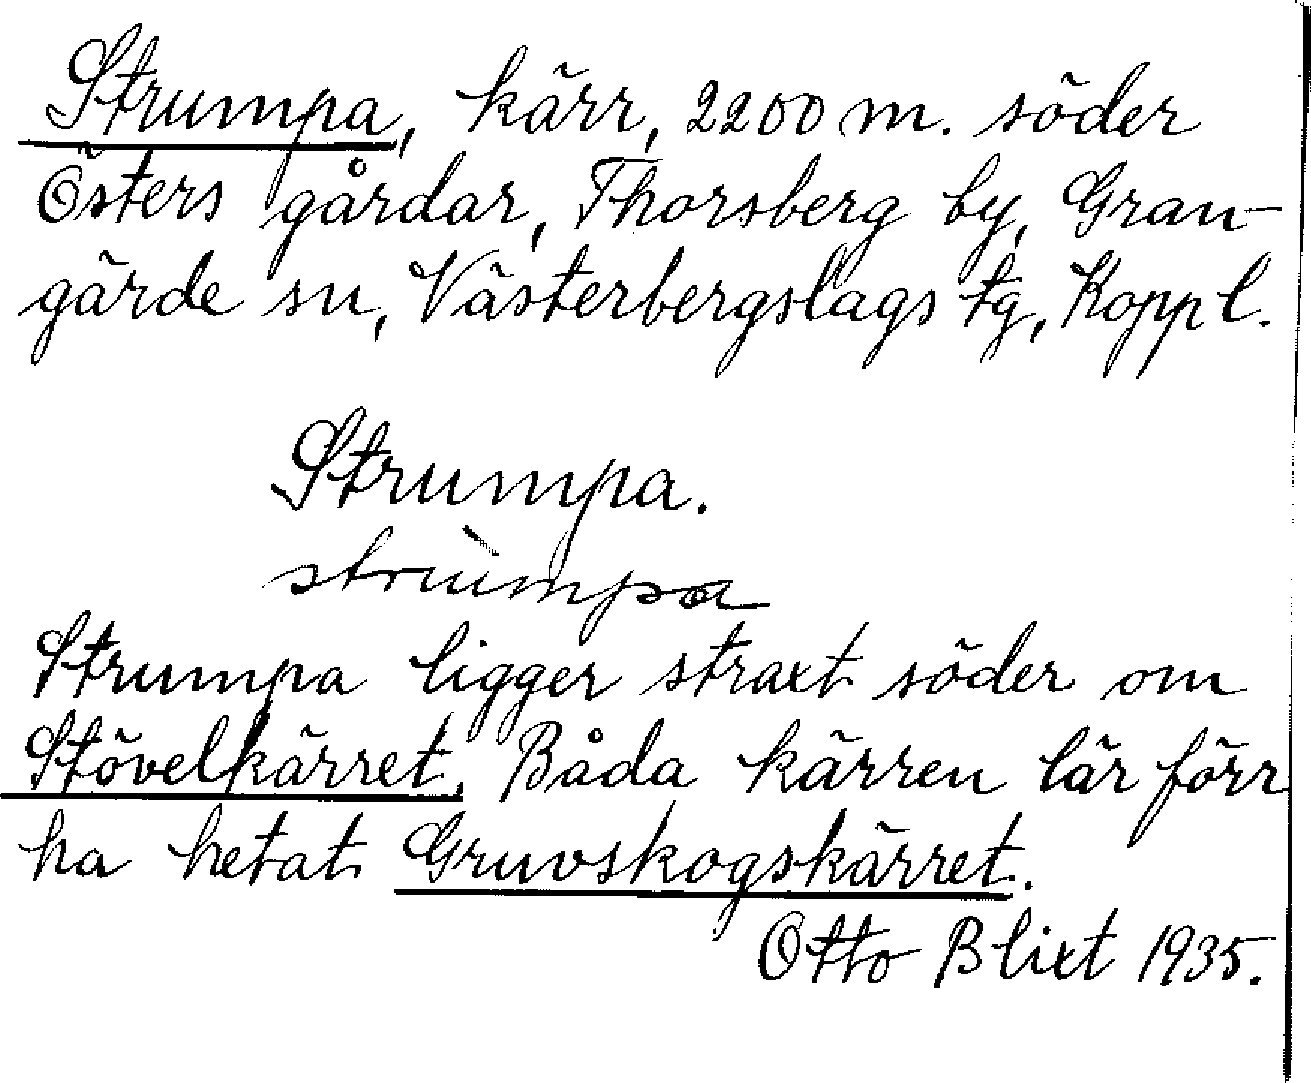 Strumpa, kärr, 2200 m. söder
Östers gårdar, Thorsberg by, Gran-
gärde sn, Västerbergslags tg, Koppl.
Strumpa.
strùmpa
Strumpa ligger straxt söder om
Stövelkärret. Båda kärren lär förr
ha hetat Gruvskogskärret.
Otto Blixt 1935.